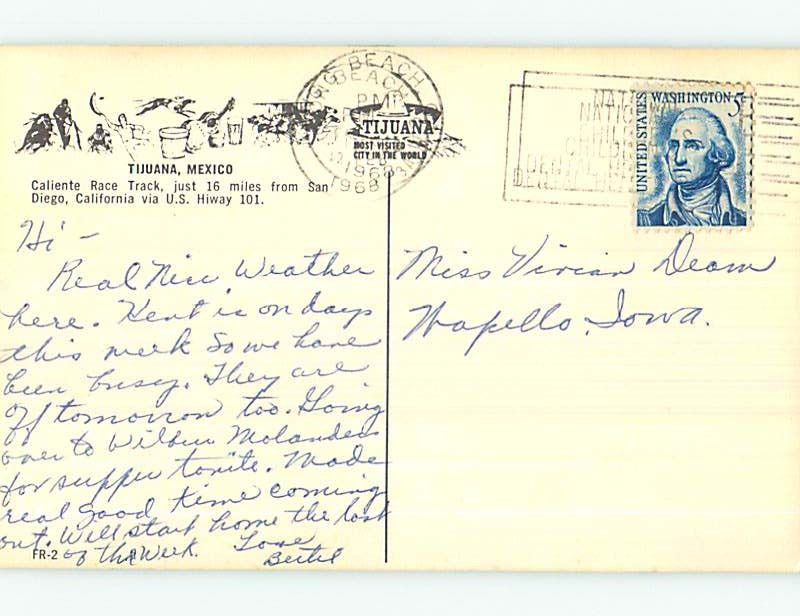 BEACH
BEACH
PM
1968
1968
TIJUANA
MOST VISITED
CITY IN THE WORLD
UNITED STATES
WASHINGTON 5¢
TIJUANA, MEXICO
Caliente Race Track, just 16 miles from San
Diego, California via U.S. Hiway 101.
Hi -
Real Nice Weather
here. Kent is on days
this week so we have
been busy. They are
off tomorrow too. Going
over to Wilbur Molanders
for supper tonite. Made
real good time coming
out. Will start home the last
of the Week. Love
Bertel
FR-2
Miss Vivian Deam
Wapello, Iowa.